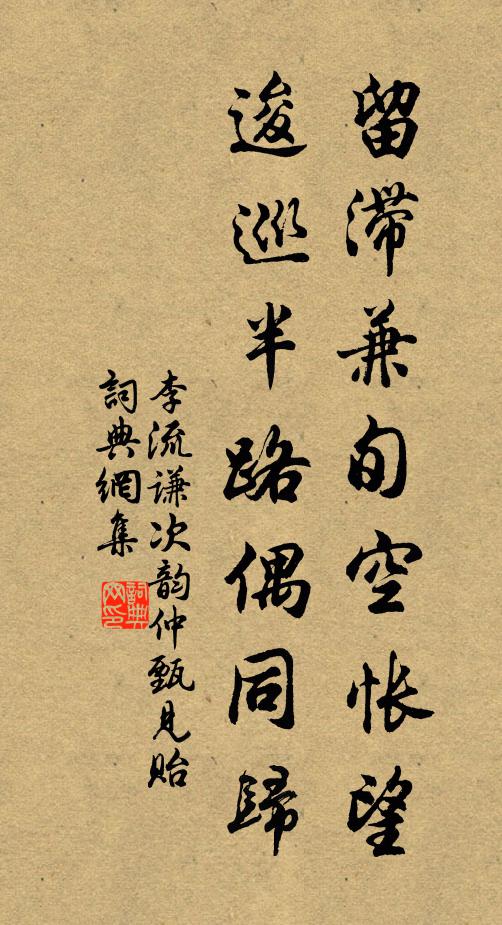 留滯兼旬空悵望
逡巡半路偶同歸
李流谦次韵仲甄見貽
詞典網集
詞典网印